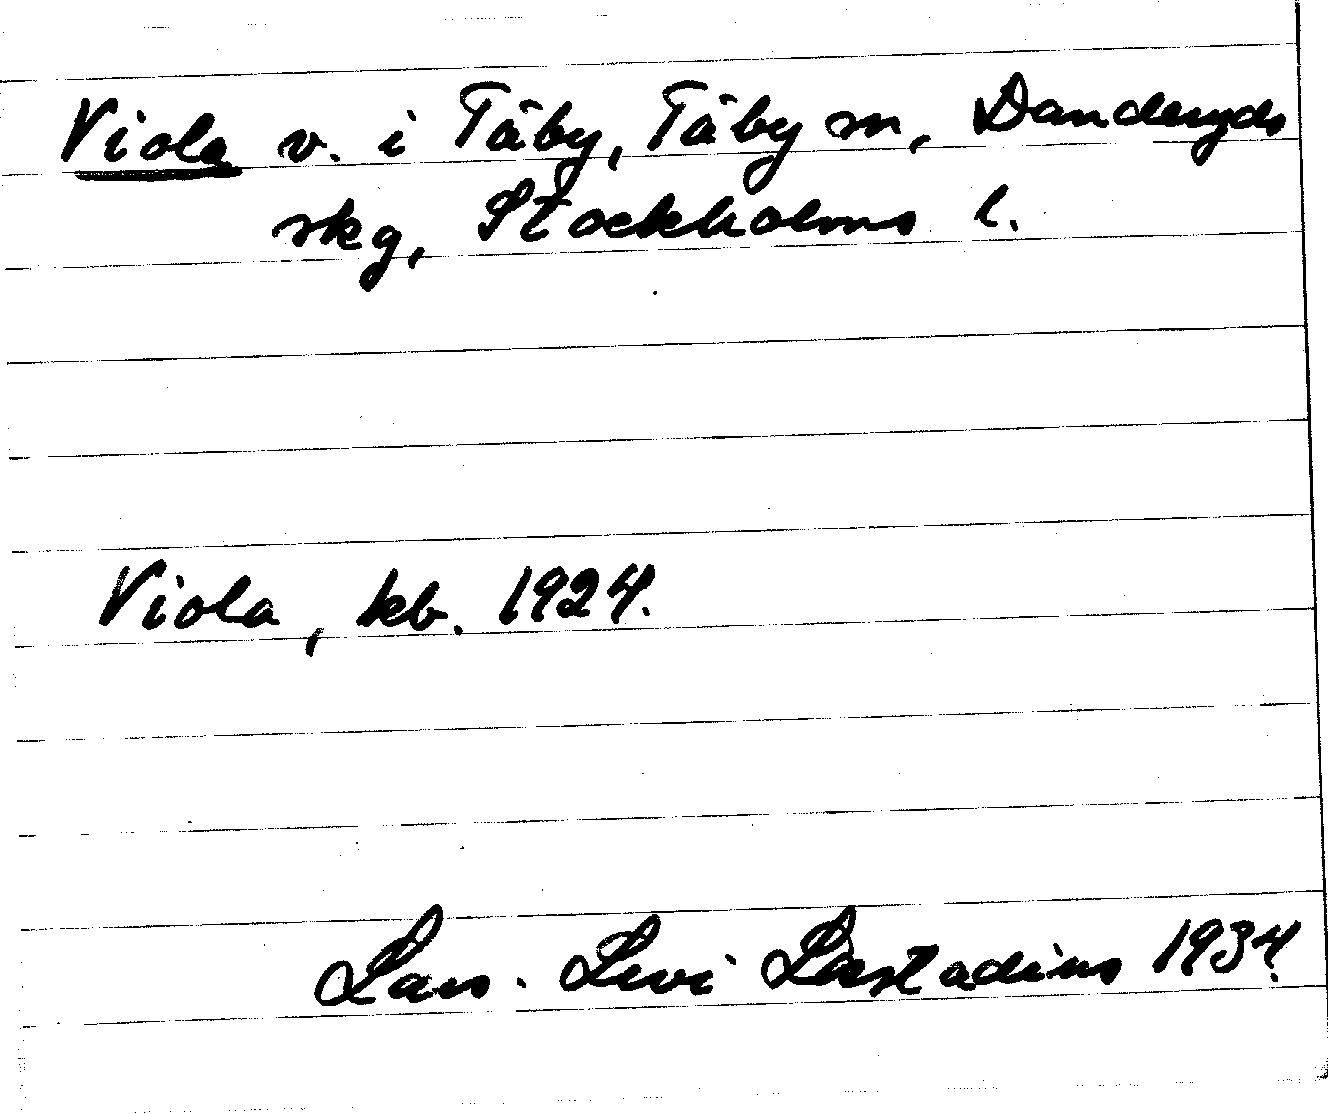 Viola v. i Täby, Täby sn, Danderyds
skg, Stockholms l.
Viola, kb. 1924.
Lars. Levi Læstadius 1934.